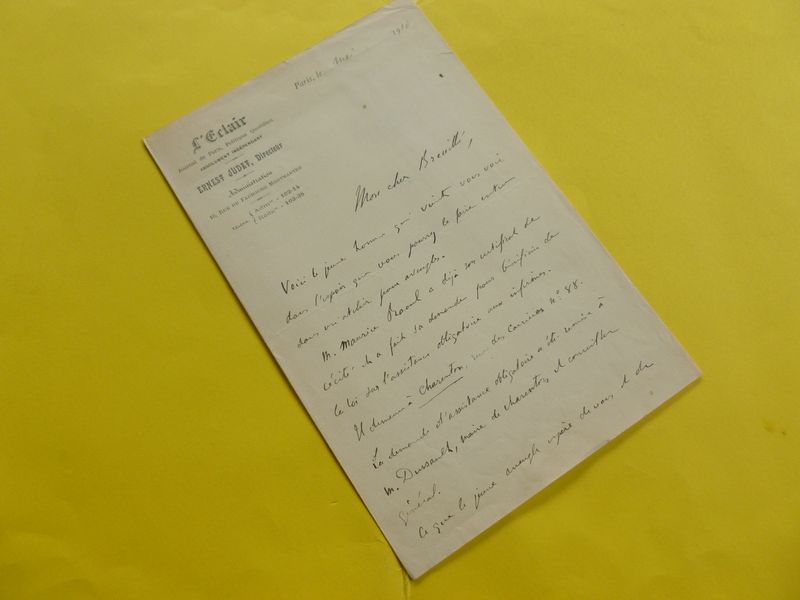 Paris, le Mai 1910
L'Eclair
Journal de Paris, Politique Quotidien
ABSOLUMENT INDÉPENDANT
ERNEST JUDET, Directeur
Administration
10, RUE DU FAUBOURG MONTMARTRE
102-14
102-38
Mon cher
Voici le jeune homme qui vient vous voir
dans l'espoir que vous pourrez le faire entrer
dans un atelier pour aveugles.
M. Maurice Raoul a déjà son certificat de
cécité. Il a fait sa demande pour bénéficier de
la loi sur l'assistance obligatoire aux infirmes.
Il demeure à Charenton, rue des Carrières N° 88.
La demande d'assistance obligatoire a été remise à
M. Dussault, maire de Charenton, et conseiller
général.
Ce que le jeune aveugle espère de vous et de